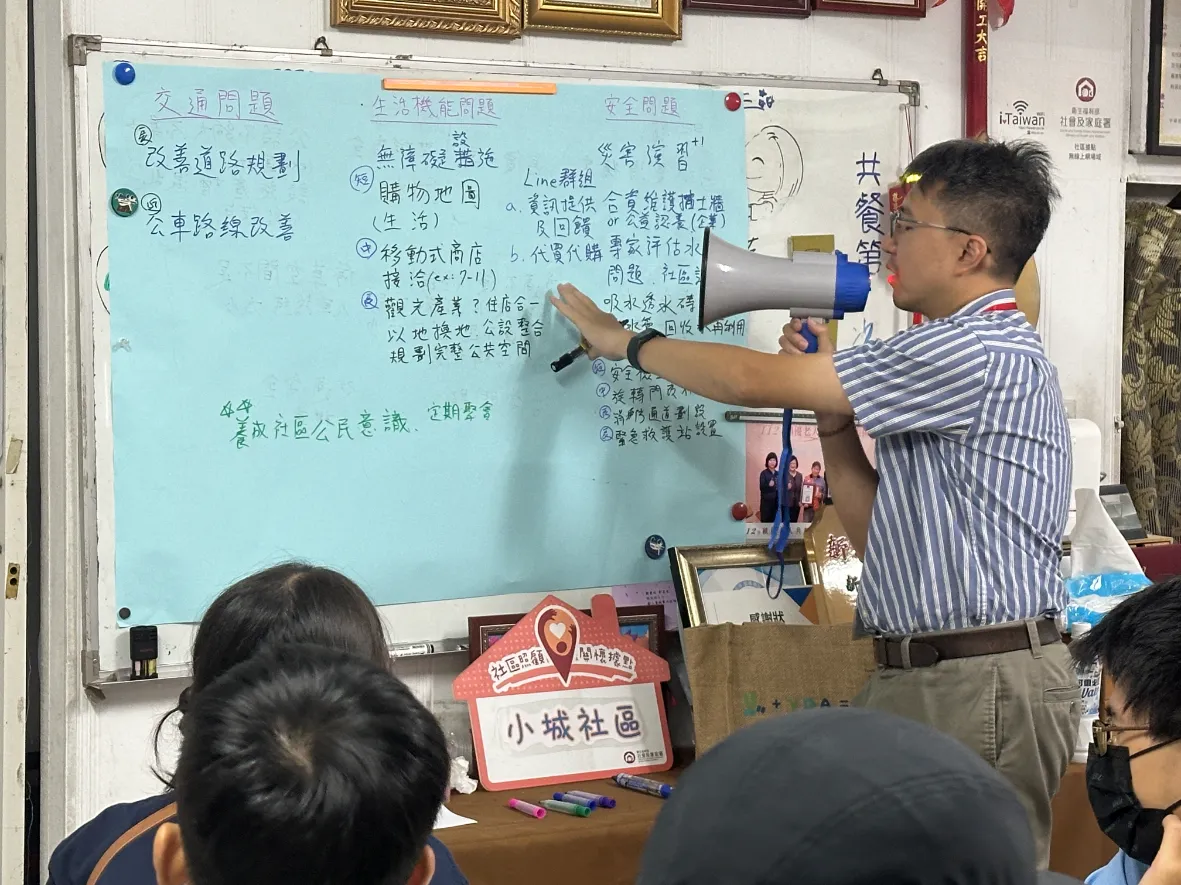 交通問題
長
改善道路規劃
近
公車路線改善
生活機能問題
設
無障礙措施
短 購物地圖
(生活)
中 移動式商店
接洽(ex:7-11)
長 觀光產業?住店合一
以地換地.公設整合
規劃完整公共空間
Line群組
a. 資訊提供
及回饋
b. 代買代購
安全問題
災害演習+1
合資維護擋土牆
or 公益認養(企業)
專家評估水
問題.社區
吸水透水磚
回收 再利用
安全
旋轉門
消防通道劃設
緊急救護站設置
養成社區公民意識.定期聚會
共餐第
開工大吉
i-Taiwan
衛生福利部
社會及家庭署
社區據點
無線上網場域
感謝狀
社區照顧 關懷據點
小城社區
社會及家庭署